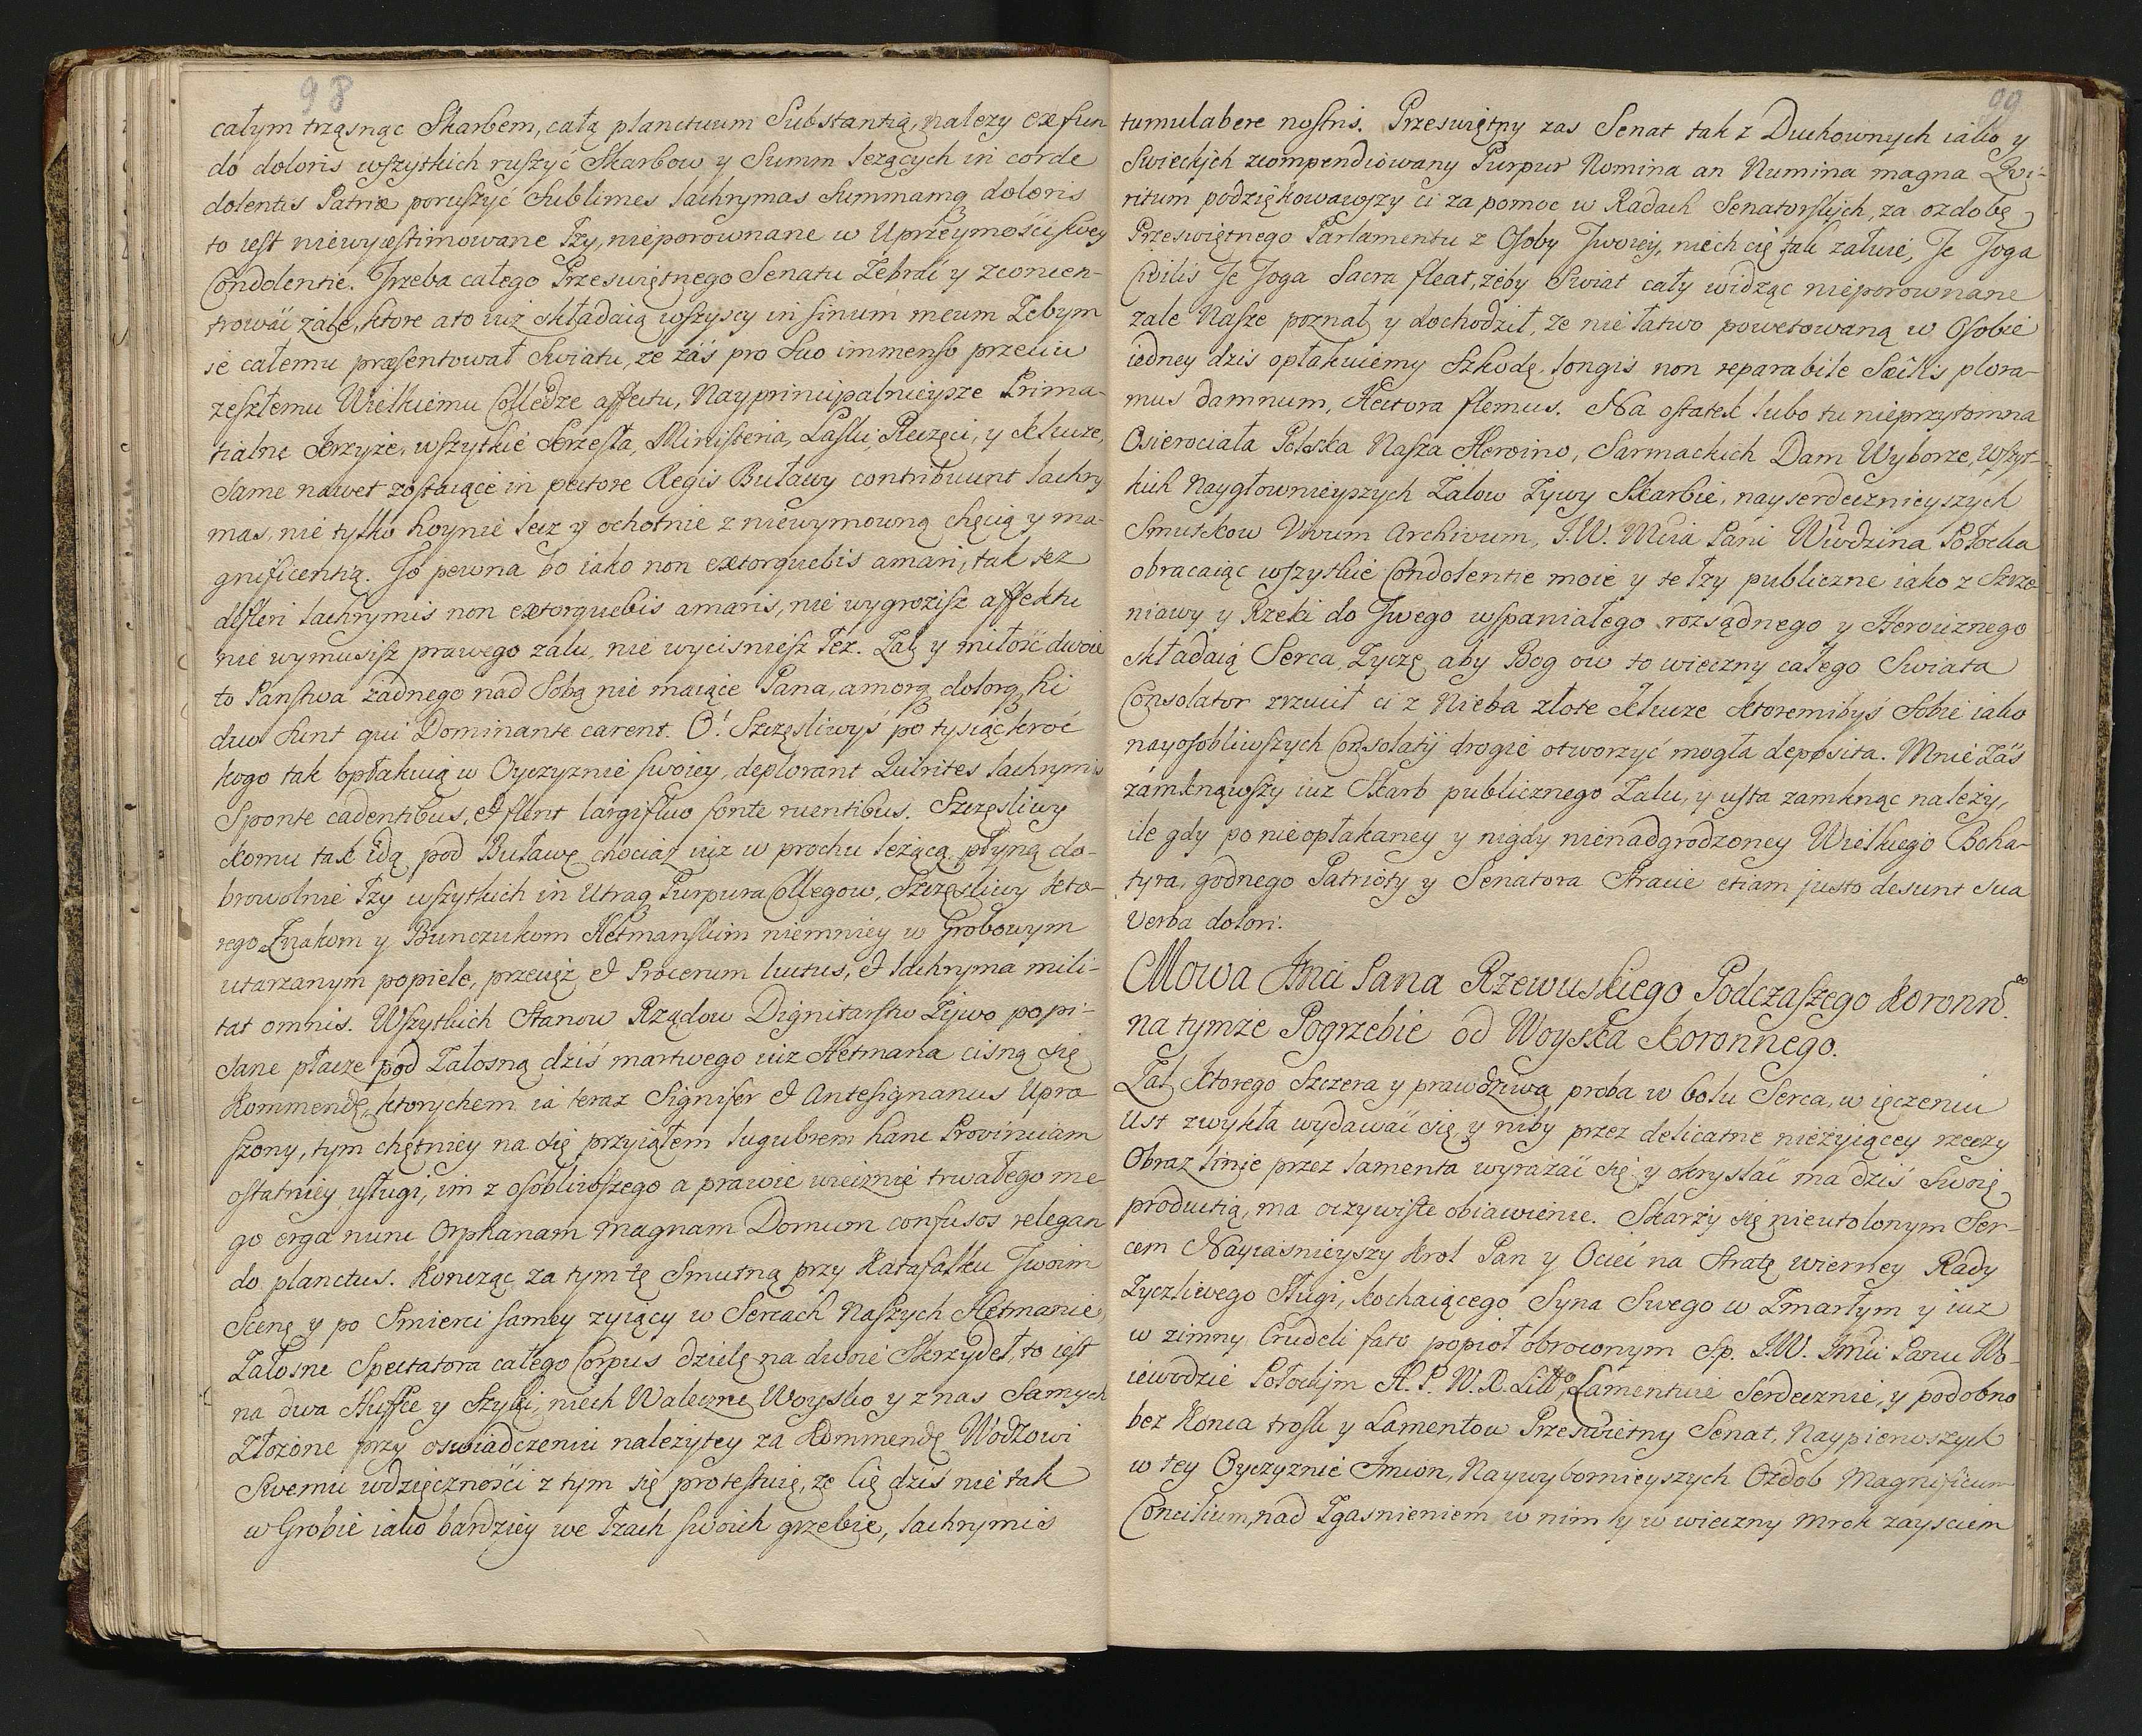 98
całym trząsnąc Skarbem, całą planctuum Substantią, nalezy ex fun
do doloris wszytkich ruszyć Skarbow y Summ lezących in corde
dolentis Patriæ poruszyć Sublimes lachrymas Summamq doloris
to iest niewyæstimowane łzy, nieporownane w Uprzeymosci swey
Condolentie. Trzeba całego Przeswiętnego Senatu Zebrać y zconcen-
trować zale, ktore ato iuz składaią wszyscy in sinum meum Zebym
ie całemu præsentował Swiatu, ze záś pro suo immenso przeciw
zeszłemu Wielkiemu Colledze affectu, Nayprincipalnieysze Prima-
tialne Krzyże, wszytkie Krzesła, Ministeria, Laski, Pieczęci, y Klucze,
same nawet zostaiące in pectore Regis Buławy contribuunt lachry
mas, nie tylko hoynie lecz y ochotnie z niewymowną chęcią y ma-
gnificentią. To pewna bo iako non extorquebis amari, tak tez
defleri lachrymis non extorquebis amaris, nie wygrozisz affektu
nie wymusisz prawego zalu, nie wycisniesz łez. Zal y miłość dwoie
to Panstwa żadnego nad Sobą nie maiące Pana, amorq dolorq hi
duo sunt qui Dominante carent. O! Szczęsliwyś po tysiąckroć
kogo tak opłakuią w Oyczyznie swoiey, deplorant Quirites lachrymis
Sponte cadentibus, et flent largifluo fonte ruentibus. Szczęsliwy
komu tak idą pod Buławę chociaż iuz w prochu leżącą płyną do-
browolnie łzy wszytkich in Utraq Purpura Collegow, Szczęsliwy kto-
rego Znakom y Bunczukom Hetmanskim niemniey w Grobowym
utarzanym popiele, przeciąż et Procerum luctus, et lachryma mili-
tat omnis. Wszytkich Stanow Rządow Dignitarstw Zywo popi-
sane płacze pod Załosną dziś martwego iuz Hetmana cisną się
Kommendę, ktorychem ia teraz Signifer et Antesignanus Upro
szony, tym chętniey na się przyiąłem lugubrem hanc Provinciam
ostatniey usługi, im z osobliwszego a prawie wiecznie trwałego me
go erga nunc Orphanam magnam Domum confusos relegan
do planctus. Koncząc za tym tę Smutną przy Katafalku Twoim
Scenę y po Smierci samey zyiący w Sercach Naszych Hetmanie,
Załosne Spectatora całego Corpus dzielę na dwoie Skrzydeł, to iest
na dwa Huffce y Szyki, niech Waleczne Woysko y z nas Samych
Złozone przy oswiadczeniu nalezytey za Kommendę Wodzowi
Swemu wdzięcznosci z tym się protestuie, ze Cię dziś nie tak
w Grobie iako bardziey we łzach swoich grzebie, lachrymis
99
tumulabere nostris. Przeswiętny zas Senat tak z Duchownych iako y
Swieckich zcompendiowany Purpur Nomina an Numina magna Qvi-
ritum podziękowawszy ci za pomoc w Radach Senatorskich, za ozdobę
Przeswiętnego Parlamentu z Osoby Twoiey, niech cię tak załuie, Te Toga
Civilis Te Toga Sacra fleat, żeby Swiat cały widząc nieporownane
zale Nasze poznał y dochodził, ze nie łatwo powetowaną w Osobie
iedney dzis opłakuiemy Szkodę, longis non reparabile Sæclis plora-
mus damnum, Hectora flemus. Na ostatek lubo tu nieprzytomna
Osierociała Polska Nasza Heroino, Sarmackich Dam Wyborze, Wszyt-
kich Naygłownieyszych Zalow Zywy Skarbie, nayserdecznieyszych
Smutkow Vivum Archivum, J.W. Mcia Pani Wwdzina Połocka
obracaiąc wszytkie Condolentie moie y te łzy publiczne iako z Szrze-
niawy y Rzeki do Twego wspaniałego rozsądnego y Heroicznego
składaią Serca, Zyczę aby Bog ow to wieczny całego Swiata
Consolator zrzucił ci z Nieba złote Klucze ktoremibyś Sobie iako
nayosobliwszych Consolatij drogie otworzyć mogła deposita. Mnie Záś
zámknąwszy iuz Skarb publicznego Zalu, y usta zamknąc należy,
ile gdy po nieopłakaney y nigdy nienadgrodzoney Wielkiego Boha-
tyra, godnego Patrioty y Senatora Stracie etiam justo desunt sua
verba dolori.
Mowa Jmci Pana Rzewuskiego Podczaszego Koronno
na tymze Pogrzebie od Woyska Koronnego.
Zal, ktorego Szczera y prawdziwa proba w bolu Serca, w ięczeniu
Ust zwykła wydawać się y niby przez delicatne nieżyiącey rzeczy
Obraz linie przez lamenta wyrażać się y okryslać ma dziś Swoię
productią, ma oczywiste obiawienie. Skarży się nieutolonym Ser-
cem Nayiasnieyszy Krol Pan y Ociec na Stratę wierney Rady
Zyczliwego Sługi, kochaiącego Syna Swego w Zmarłym y iuz
w zimny Crudeli fato popioł obroconym Sp. J.W. Jmci Panu Wo-
iewodzie Połockim H. P. W. X. Litto, Lamentuie Serdecznie, y podobno
bez Konca trosk y Lamentow Przeswietny Senat, Naypierwszych
w tey Oyczyznie Imion, Naywybornieyszych Ozdob Magnificum
Concilium, nad Zgasnieniem w nim y w wieczny mrok zaysciem